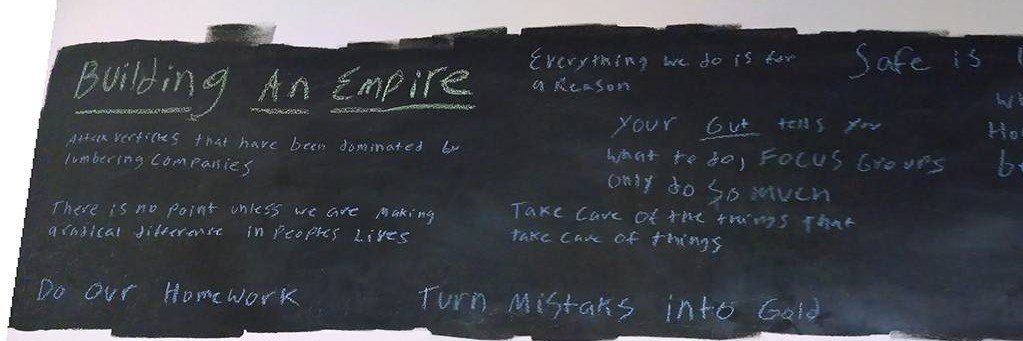 Building An Empire
Attack verticles that have been dominated by
lumbering companies
There is no point unless we are making
a radical difference in peoples Lives
Do our Homework
Everything we do is for
a Reason
Your Gut tells you
what to do, Focus Groups
only do so much
Take care of the things that
take care of things
Turn Mistaks into Gold
Safe is